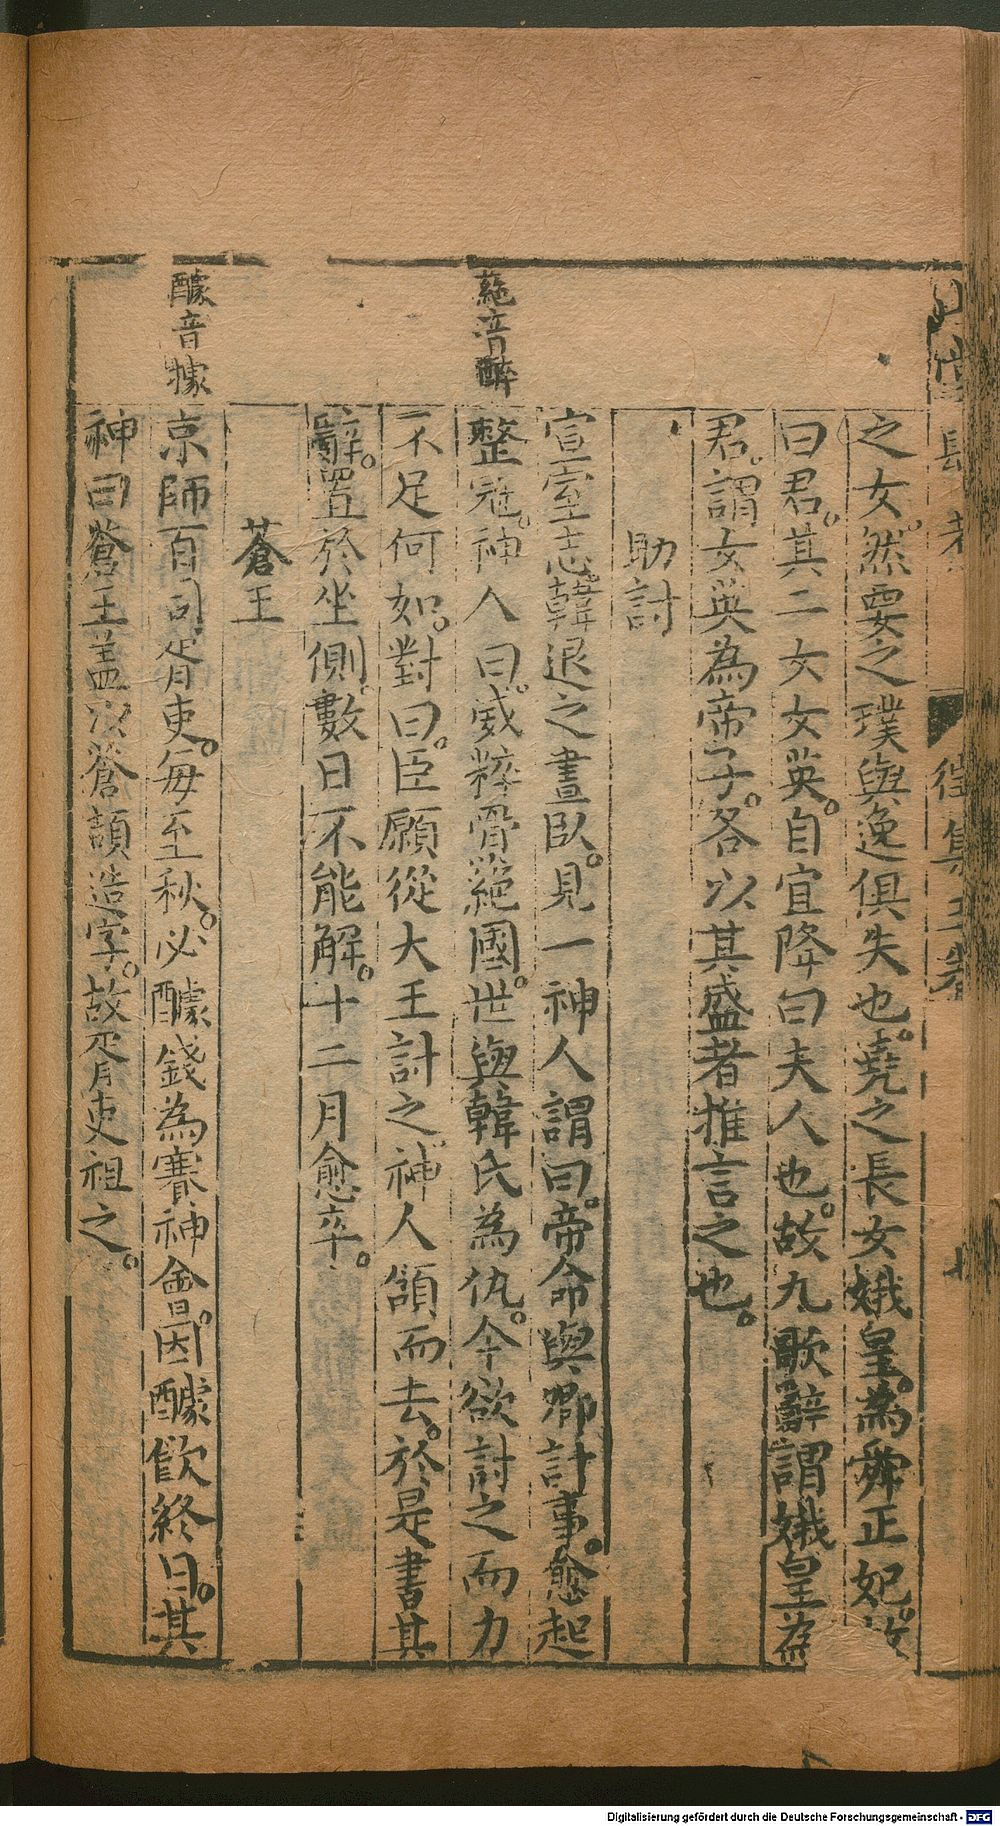 山堂肆考
徵集
之女然要之璞與逸俱失也堯之長女娥皇為舜正妃故
曰君其二女女英自宜降曰夫人也故九歌辭謂娥皇為
君謂女英為帝子各以其盛者推言之也
助討
宣室志韓退之晝臥見一神人謂曰帝命與卿計事愈起
整冠神人曰威粹骨蕝國世與韓氏為仇今欲討之而力
蕝音醉
不足何如對曰臣願從大王討之神人頷而去於是書其
辭置於坐側數日不能解十二月愈卒
蒼王
京師百司胥吏每至秋必醵錢為賽神會因醵飲終日其
醵音據
神曰蒼王盖以蒼頡造字故胥吏祖之
Digitalisierung gefördert durch die Deutsche Forschungsgemeinschaft - DFG